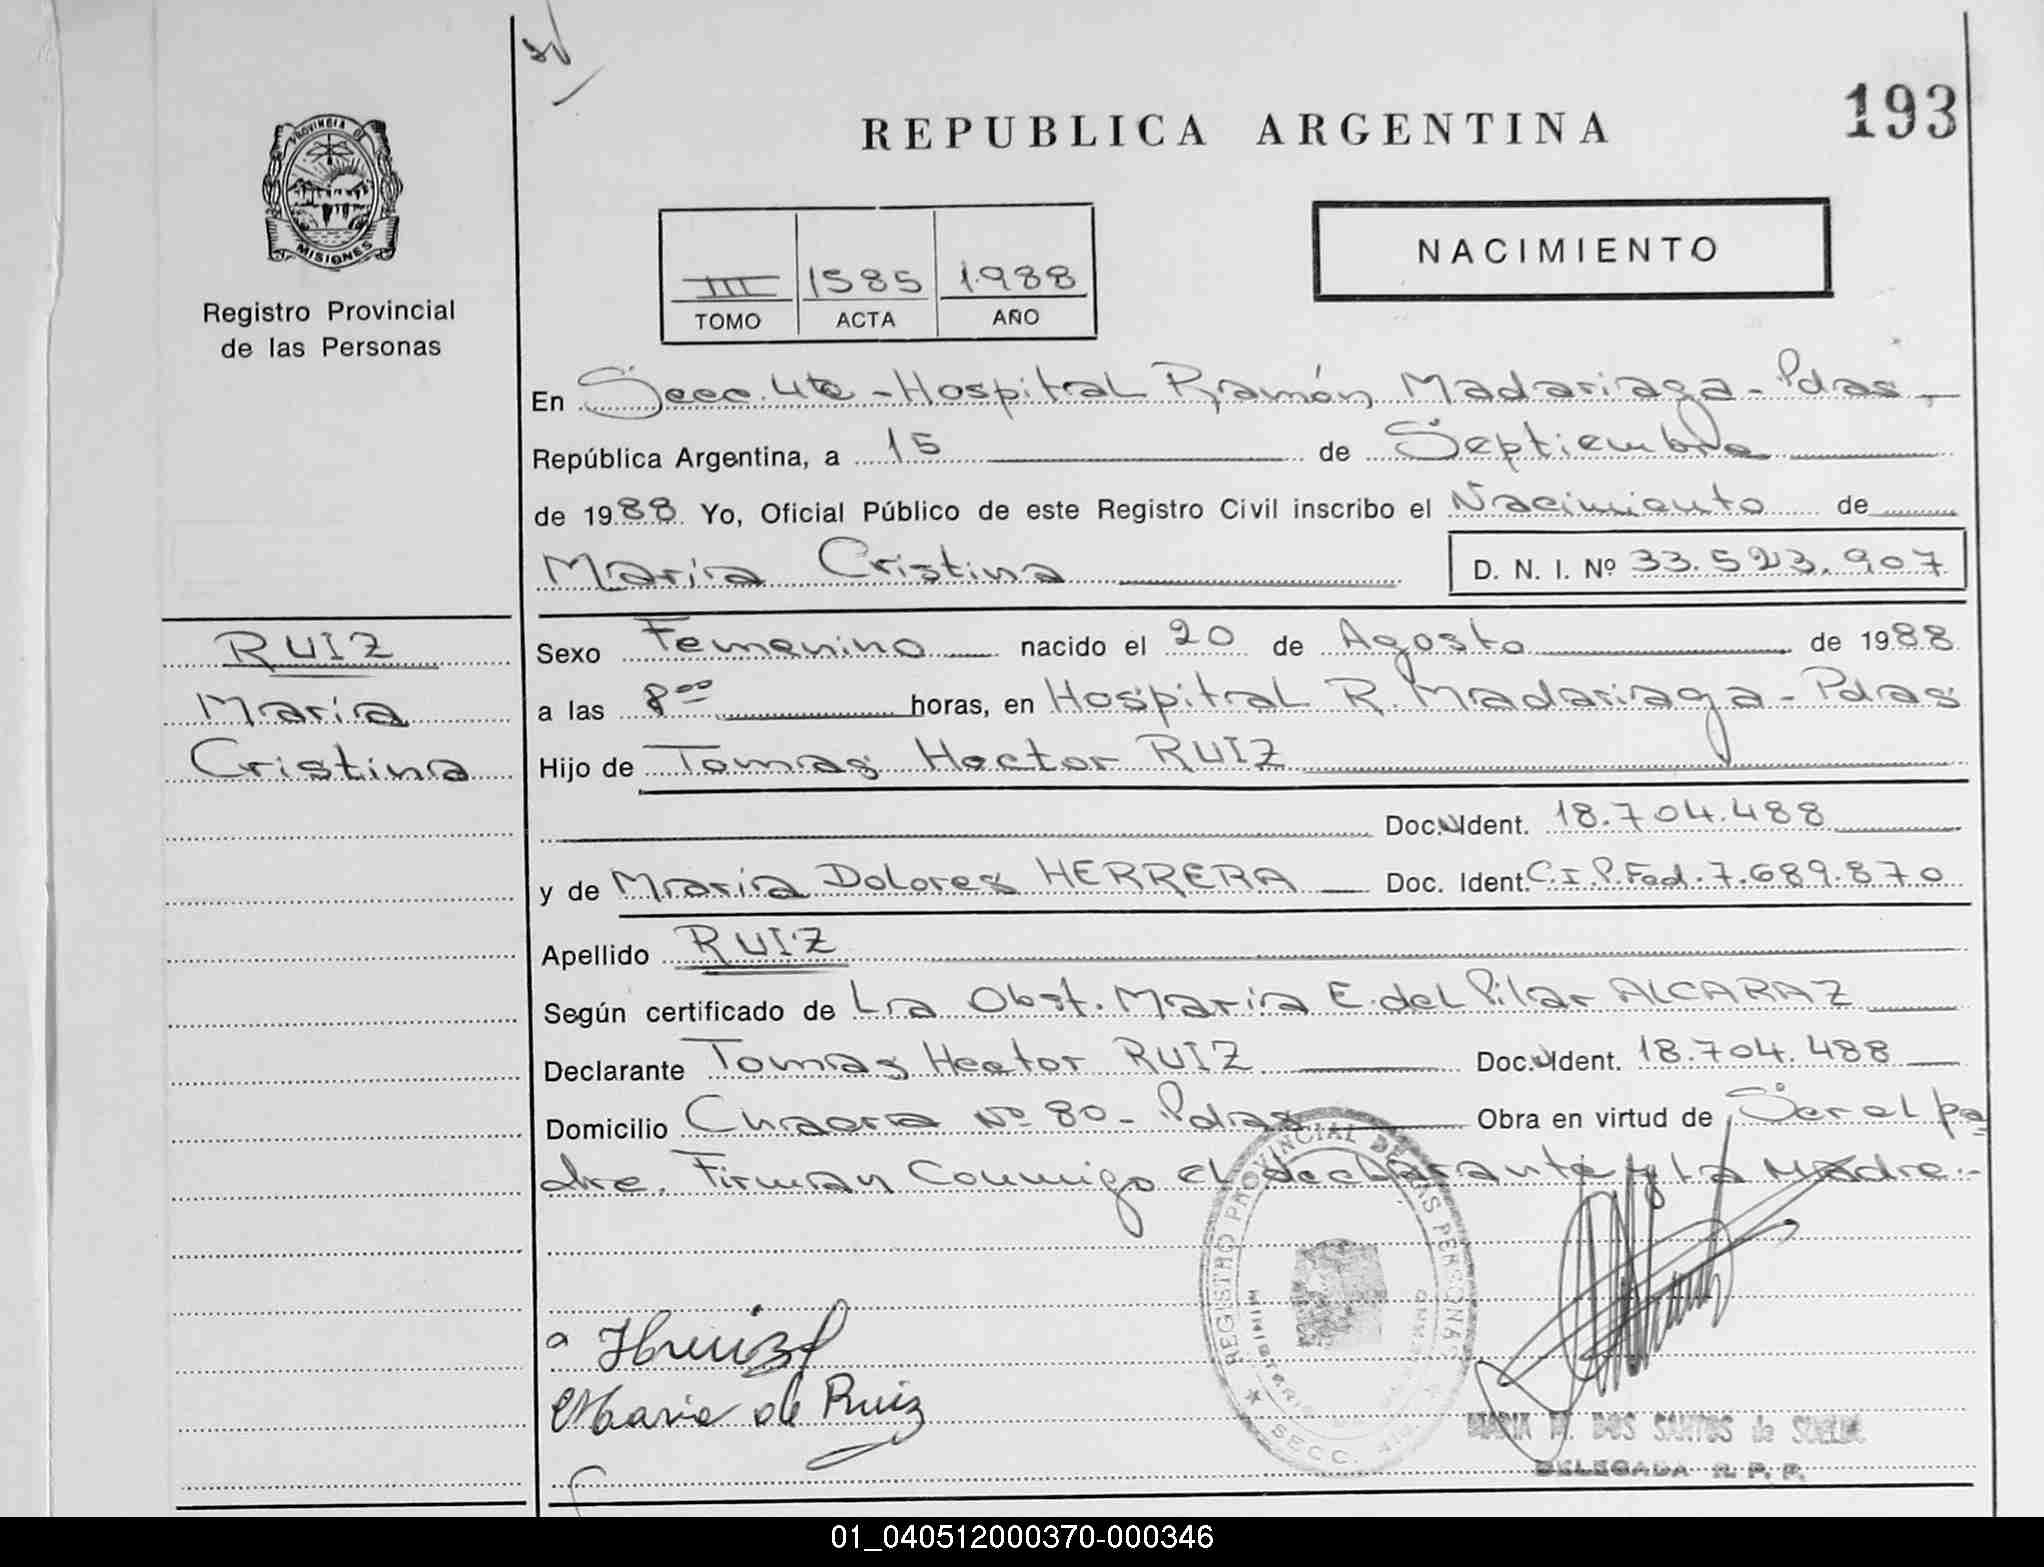 193
REPUBLICA ARGENTINA
PROVINCIA DE
MISIONES
Registro Provincial
de las Personas
NACIMIENTO
III 1585 1988
TOMO ACTA AÑO
En Secc. 4ta - Hospital Ramón Madariaga - Pdas -
República Argentina, a 15 de Septiembre
de 1988 Yo, Oficial Público de este Registro Civil inscribo el Nacimiento de
María Cristina D. N. I. Nº 33.523.907
RUIZ
María
Cristina
Sexo Femenino nacido el 20 de Agosto de 1988
a las 8 00 horas, en Hospital R. Madariaga - Pdas
Hijo de Tomas Hector RUIZ
Doc. Ident. 18.704.488
y de María Dolores HERRERA Doc. Ident. C.I.P.Fed. 7.689.870
Apellido RUIZ
Según certificado de La Obst. María E. del Pilar ALCARAZ
Declarante Tomas Hector RUIZ Doc. Ident. 18.704.488
Domicilio Chacra Nº 80 - Pdas Obra en virtud de Ser el pa
dre. Firman Conmigo el declarante y la Madre.-
REGISTRO PROVINCIAL DE LAS PERSONAS
SECC. 4ta.
Maria de Ruiz
MARIA DOS SANTOS de
DELEGADA R. P. P.
01_040512000370-000346